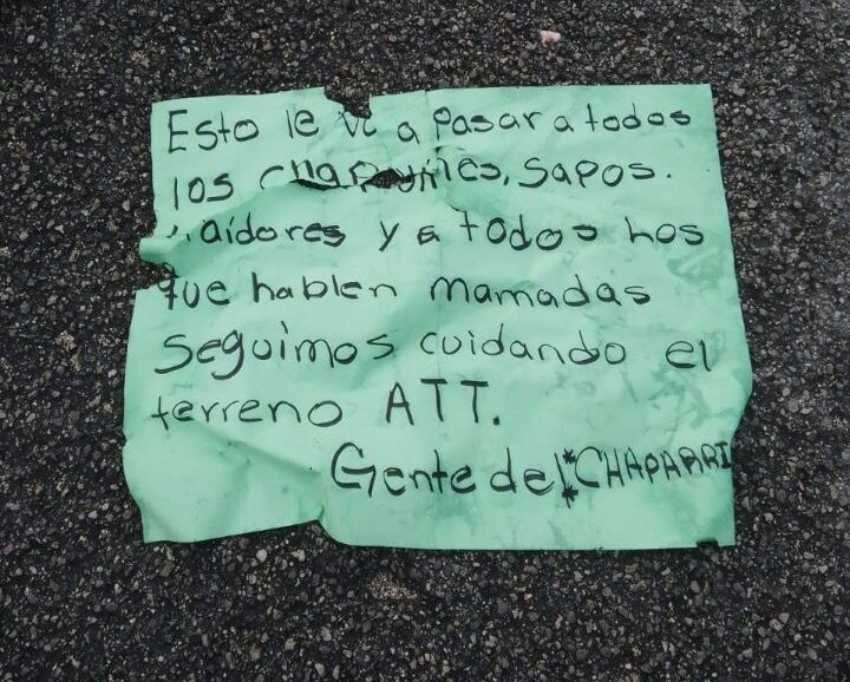 Esto le va a pasar a todos
los chapulines, sapos.
raidores y a todos hos
que hablen mamadas
Seguimos cuidando el
terreno ATT.
Gente del CHAPARRI